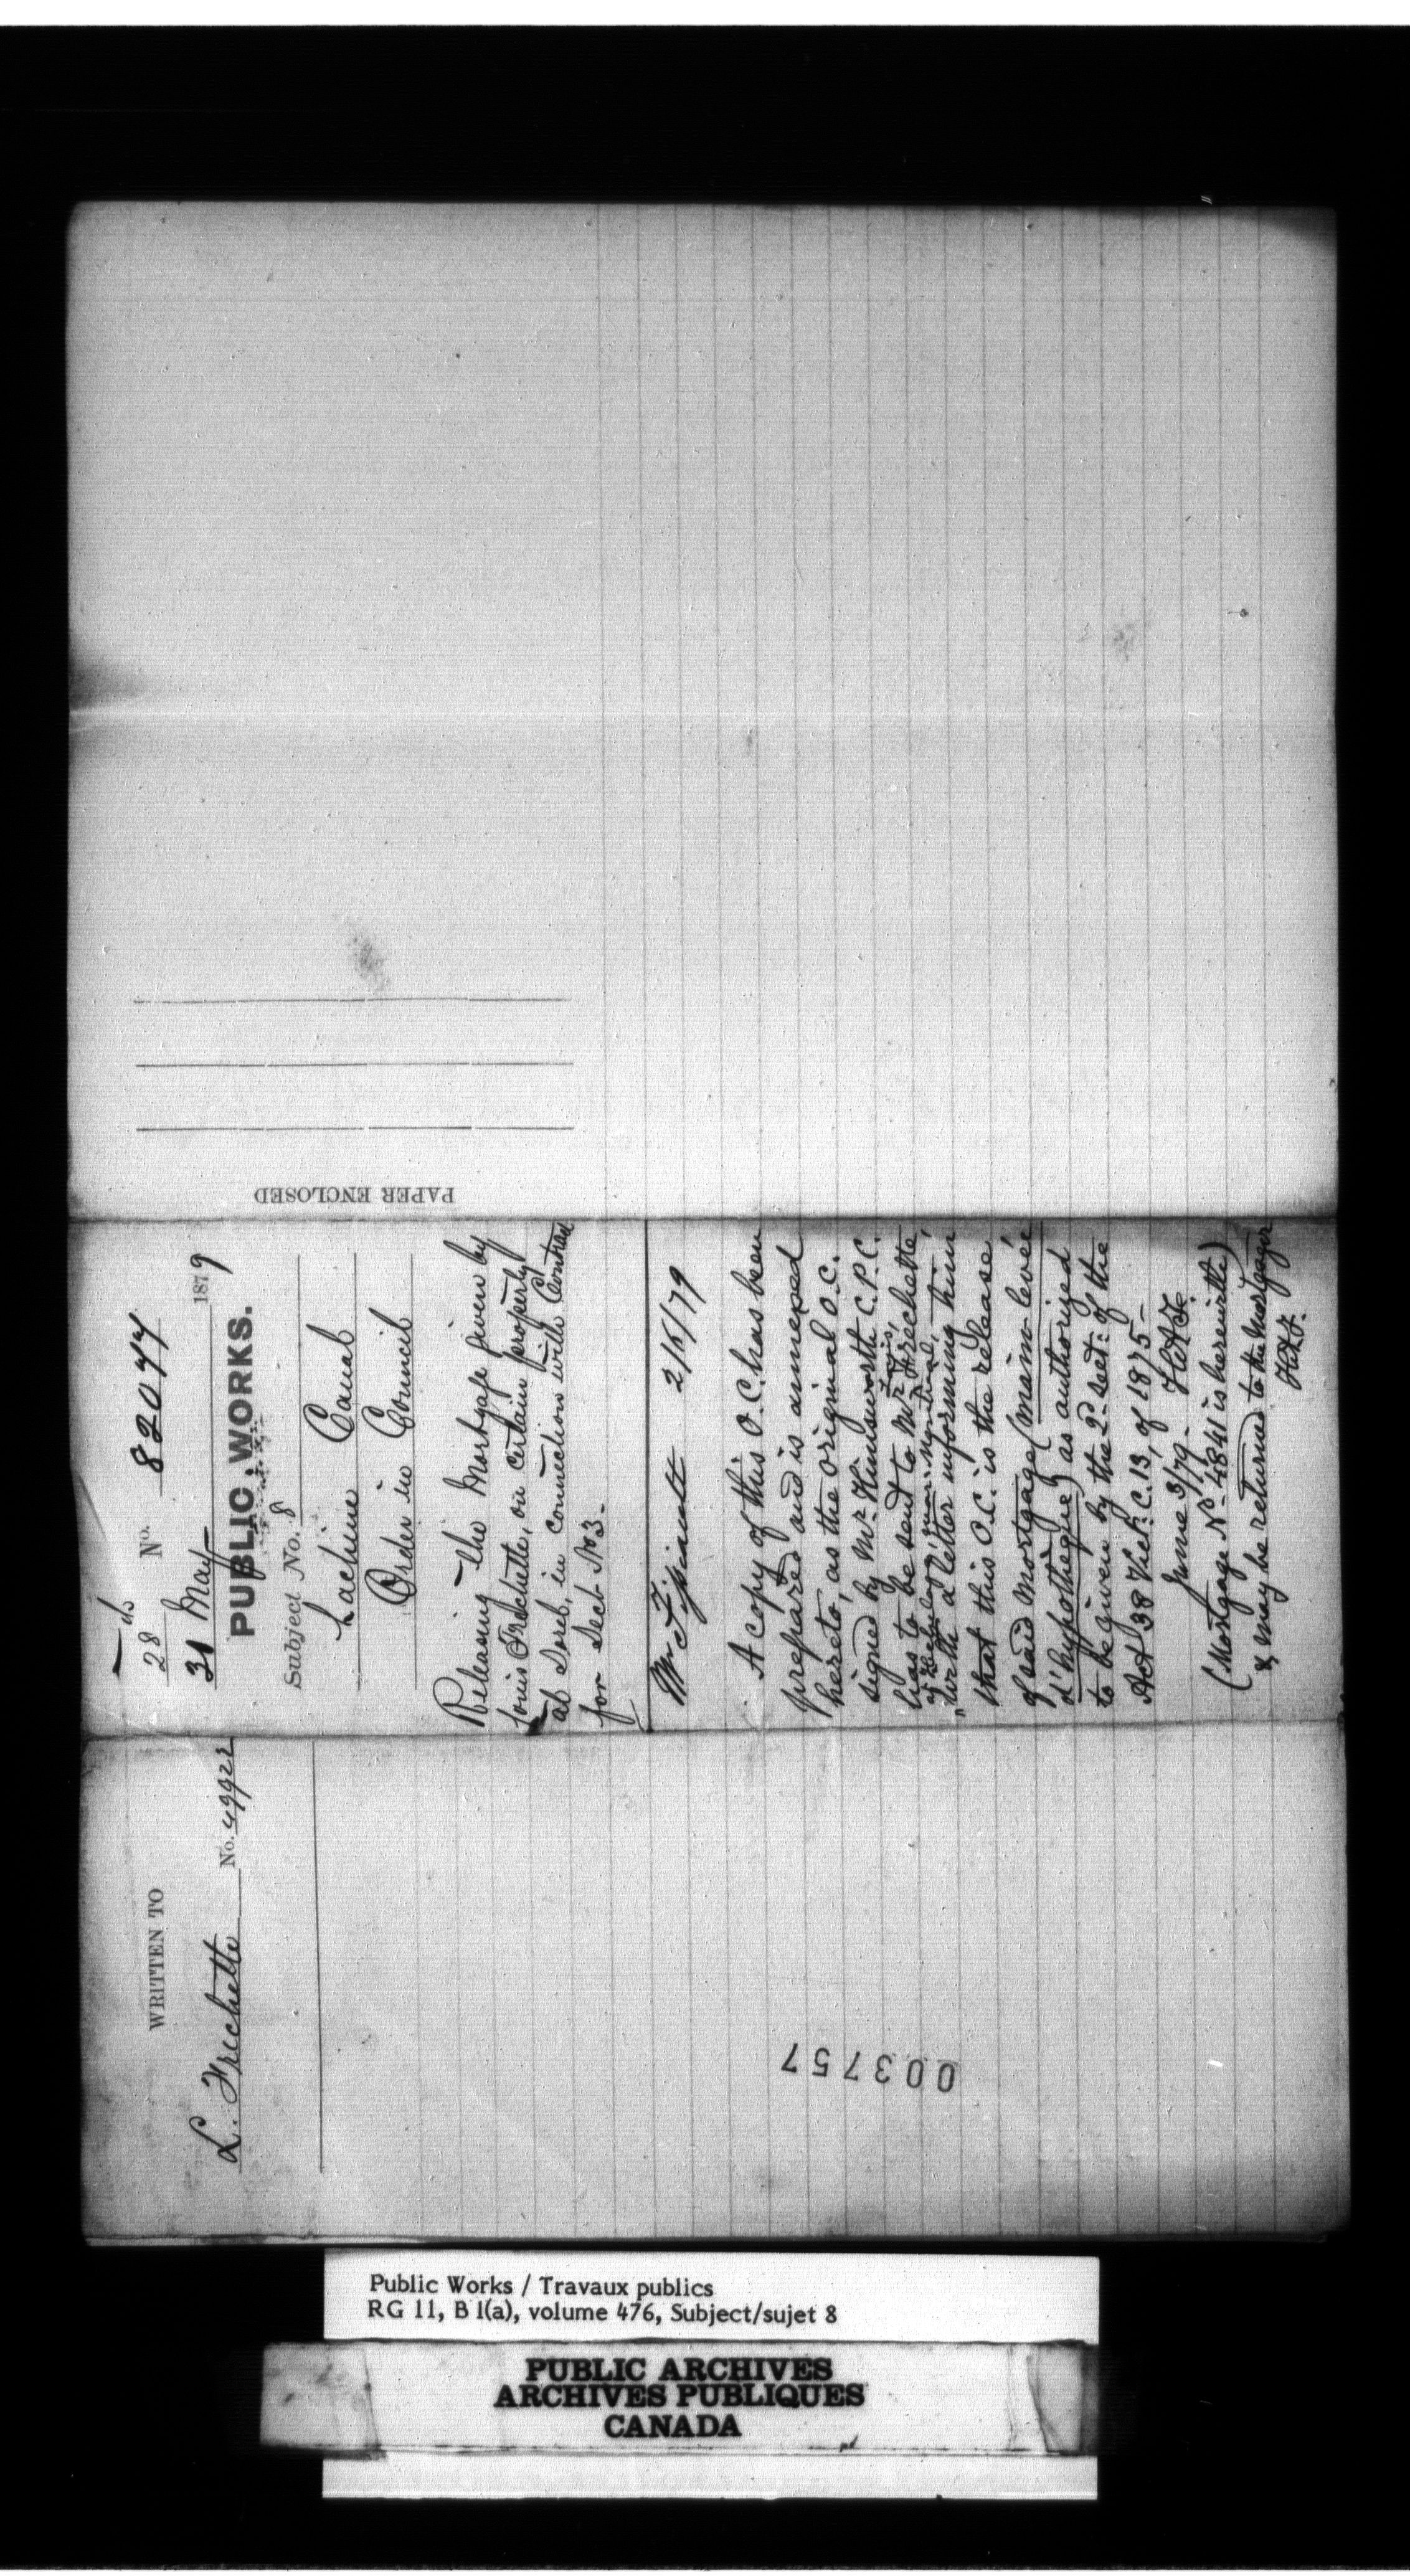 WRITTEN TO
L. Frechette No. 49922
28 No. 82077
31 May 1879
PUBLIC WORKS.
Subject No. 8
Lachine Canal
Order in Council
Releasing the Mortgage given by
Louis Frechette, on certain property
at Sorel, in connection with Contract
for Sect. No 3.
Mr 2/6/79
A copy of this O.C. has been
prepared and is annexed
hereto, as the original O.C.
signed by Mr Himsworth C.P.C.
has to be sent to Mr Louis Frechette
Montreal,
with a letter informing him
that this O.C. is the release
of said Mortgage (main levée
d'hypothèque) as authorized
to be given by the 2d sect: of the
Act 38 Vict: C. 13, of 1875-
June 3/79-
(Mortgage No 4841 is herewith)
& may be returned to the Mortgagor
PAPER ENCLOSED
003757
Public Works / Travaux publics
RG 11, B 1(a), volume 476, Subject/sujet 8
PUBLIC ARCHIVES
ARCHIVES PUBLIQUES
CANADA